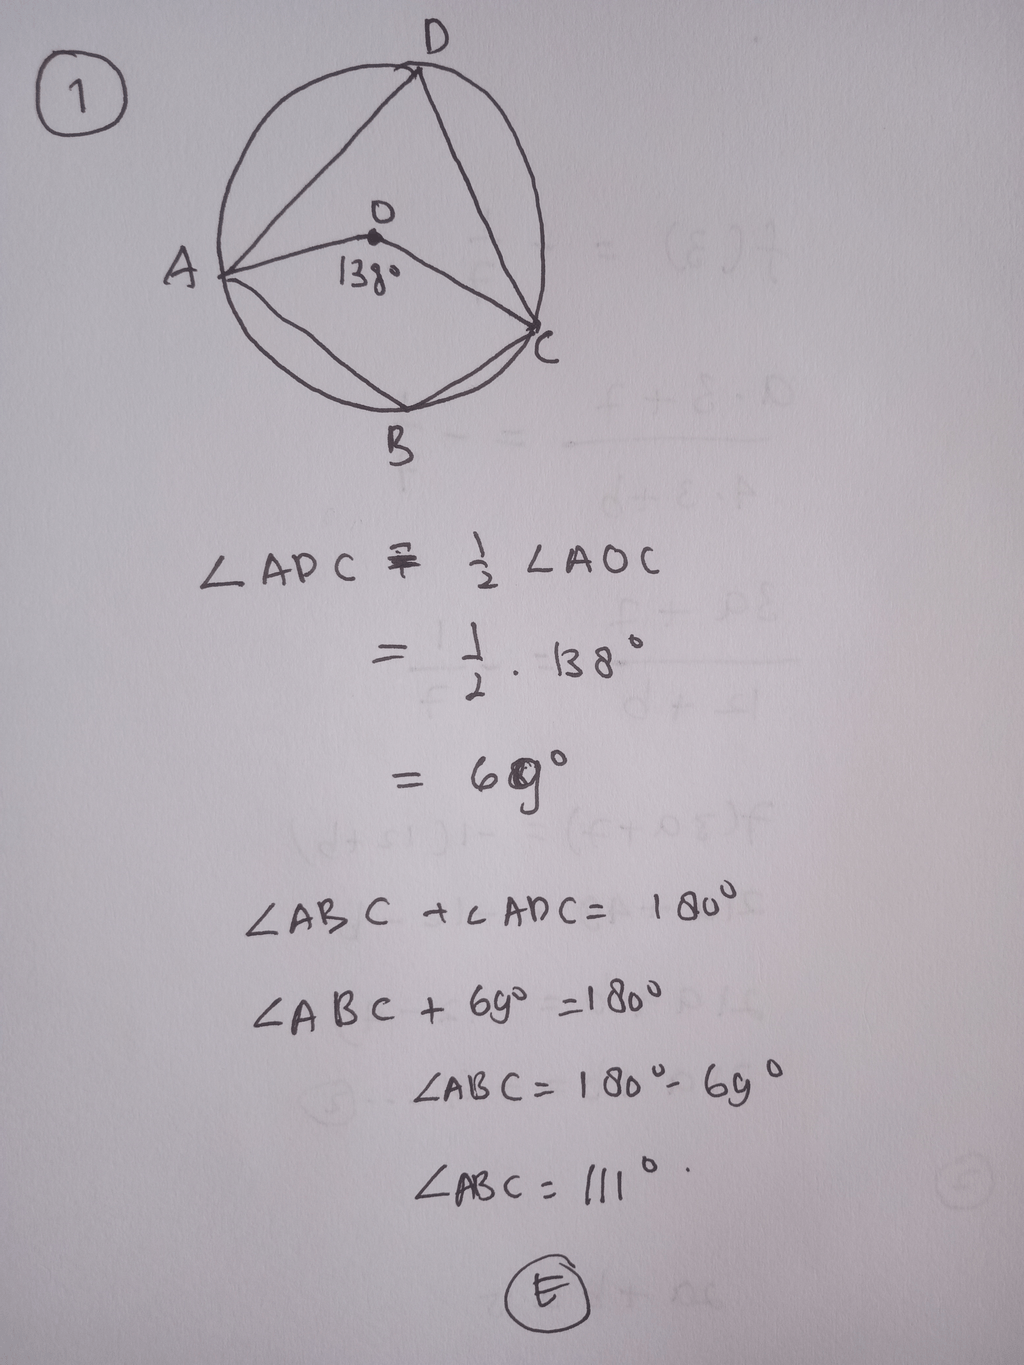 1
D
O
A
138°
C
B
∠ADC = 1/2 ∠AOC
= 1/2 . 138°
= 69°
∠ABC + ∠ADC = 180°
∠ABC + 69° = 180°
∠ABC = 180° - 69°
∠ABC = 111°.
E